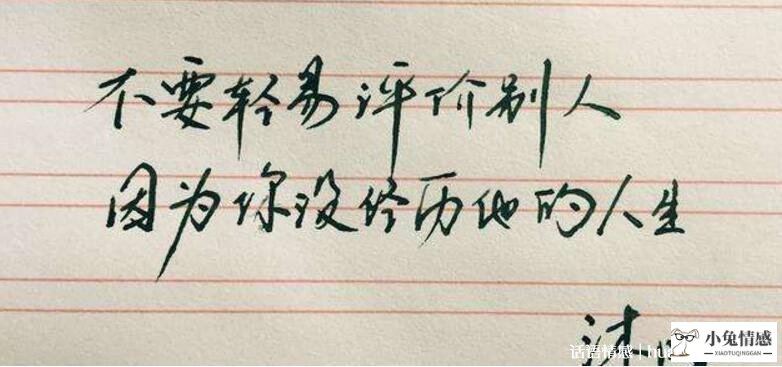 不要轻易评价别人
因为你没经历他的人生
话语情感
小兔情感
XIAOTUQINGGAN